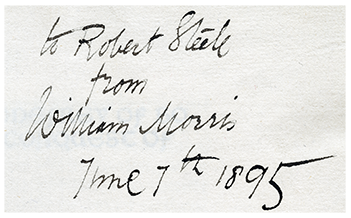 to Robert Steele
from
William Morris
June 7th 1895